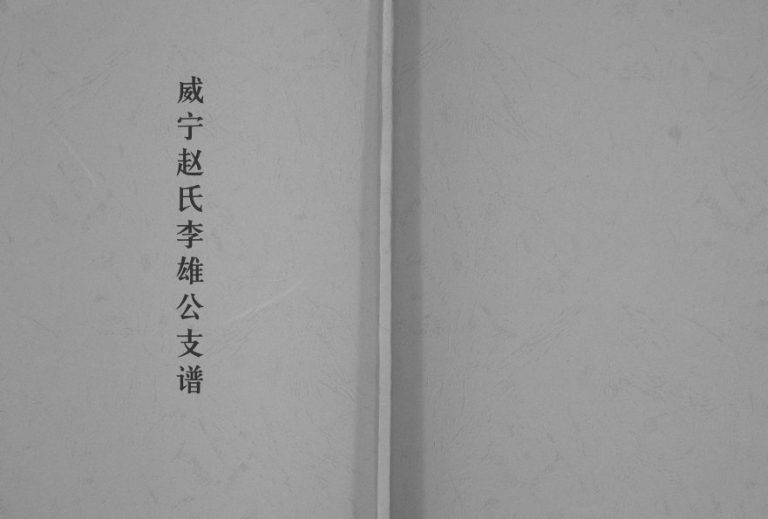 威宁赵氏李雄公支谱